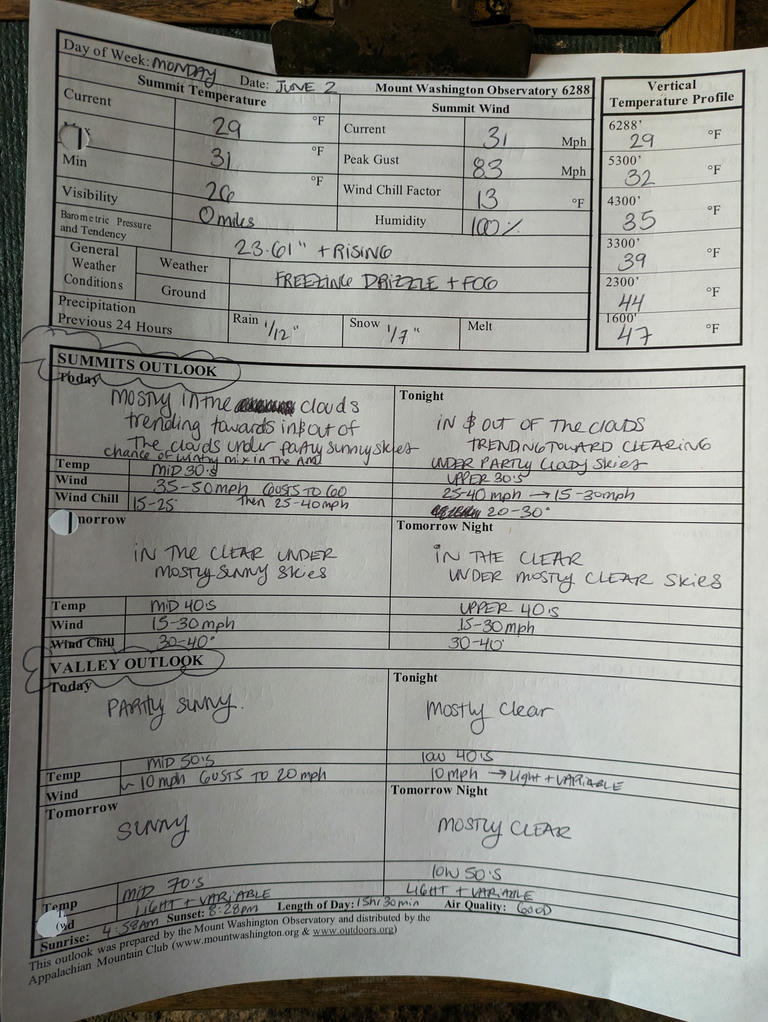 Day of Week: MONDAY Date: JUNE 2 Mount Washington Observatory 6288
Summit Temperature Summit Wind
Current 29 °F Current 31 Mph
31 °F Peak Gust 83 Mph
Min 26 °F Wind Chill Factor 13 °F
Visibility 0 miles Humidity 100%
Barometric Pressure and Tendency 23.61" + RISING
General Weather Conditions
Weather FREEZING DRIZZLE + FOG
Ground
Precipitation Previous 24 Hours Rain 1/12" Snow 1/7" Melt
Vertical
Temperature Profile
6288' 29 °F
5300' 32 °F
4300' 35 °F
3300' 39 °F
2300' 44 °F
1600' 47 °F
SUMMITS OUTLOOK
Today
Mostly in the clouds
trending towards in & out of
The clouds under partly sunny skies
chance of wintry mix in the AM
Temp MID 30's
Wind 35-50mph GUSTS TO 60
Then 25-40mph
Wind Chill 15-25
Tonight
IN & OUT OF THE CLOUDS
TRENDING TOWARD CLEARING
UNDER PARTLY CLOUDY SKIES
UPPER 30's
25-40 mph → 15-30mph
20-30°
morrow
IN THE CLEAR UNDER
MOSTLY SUNNY SKIES
Temp MID 40's
Wind 15-30 mph
Wind Chill 30-40°
Tomorrow Night
IN THE CLEAR
UNDER MOSTLY CLEAR SKIES
UPPER 40's
15-30 mph
30-40°
VALLEY OUTLOOK
Today
PARTLY SUNNY.
Temp MID 50's
Wind ~10 mph GUSTS TO 20 mph
Tonight
Mostly Clear
low 40's
10 mph → Light + VARIABLE
Tomorrow
SUNNY
Temp MID 70's
LIGHT + VARIABLE
Tomorrow Night
MOSTLY CLEAR
low 50's
LIGHT + VARIABLE
Sunrise: 4:58AM Sunset: 8:28pm Length of Day: 15hr 30min Air Quality: GOOD
This outlook was prepared by the Mount Washington Observatory and distributed by the
Appalachian Mountain Club (www.mountwashington.org & www.outdoors.org)